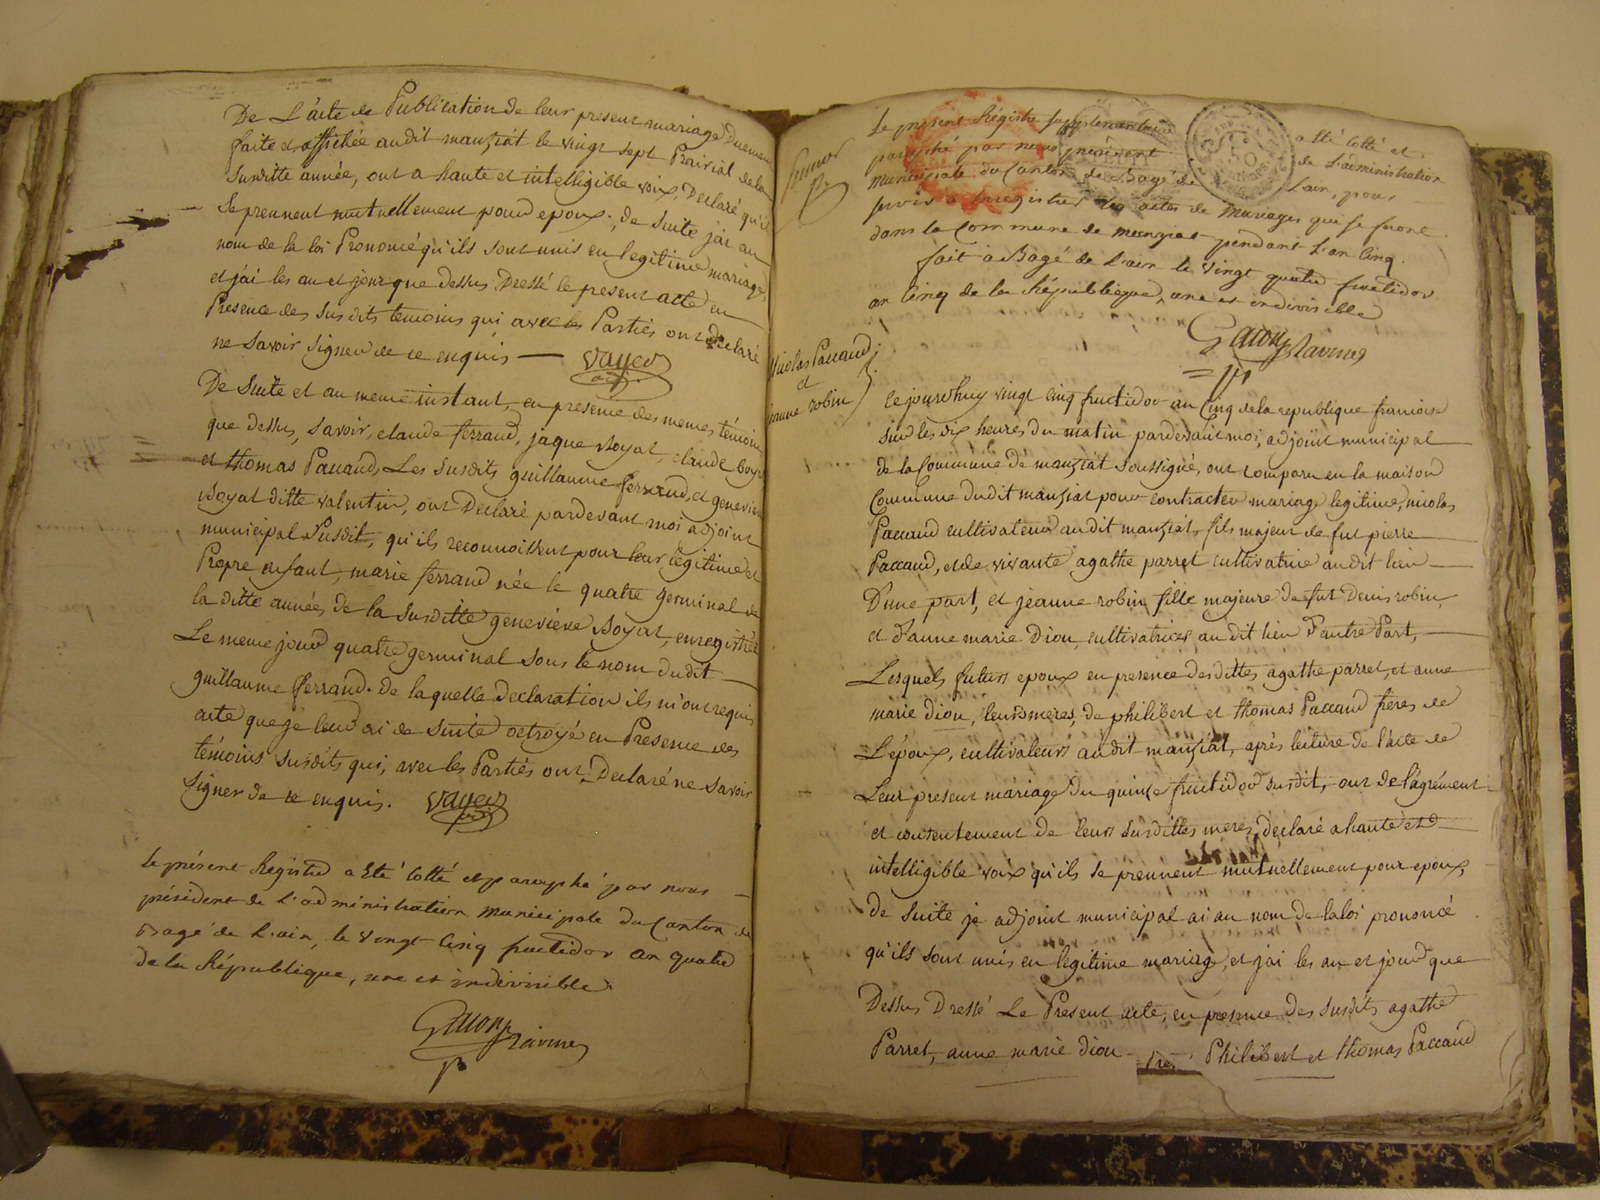 De L'acte de Publication de leur present mariage Duement
faite et affichée audit manziat le vingt sept Prairial de la
Susditte année, ont a haute et intelligible voix, Declaré qu'ils
Se prennent mutuellement pour epoux, de Suite j'ai au
nom de la loi Prononcé qu'ils sont unis en legitime mariage,
et j'ai les an et jour que dessus Dressé le present acte en
Presence des Susdits temoins qui avec les Parties ont declaré
ne Savoir Signer de ce enquis — Vayeur
De Suite et au meme instant, en presence des memes témoins
que dessus, Savoir, claude ferrand, jaque Boyat, claude Boyat
et thomas Paccaud, Les Susdits guillaume ferrand, et genevieve
Boyat ditte valentin, ont Declaré pardevant moi adjoint
municipal Susdit, qu'ils reconnoissent pour leur legitime et
Propre enfant, marie ferrand née le quatre germinal de
la ditte année, de la Susditte genevieve Boyat, enregistrée
Le meme jour quatre germinal sous le nom dudit
guillaume ferrand. de laquelle declaration ils m'ont requis
acte que je leur ai de Suite octroyé en Presence des
témoins Susdits qui, avec les Parties ont Declaré ne Savoir
Signer de ce enquis. Vayeur
Le présent Registre a Eté Cotté et paraphé par nous
président de L'administration municipale du Canton de
Bagé de L'ain, le vingt-Cinq fructidor an quatre
de la République, une et indivisible
Le present Régistre Supplementaire a été Cotté et
paraphé par nous president de L'administration
municipale du Canton de Bagé de L'ain, pour
servir a Enregistrer les actes de mariages qui se feront
dans la Commune de manziat pendant L'an Cinq.
fait a Bagé de L'ain le vingt quatre fructidor
an Cinq de la République, une et indivisible
Nicolas Paccaud
et
jeanne robin
Ce jourd'huy vingt cinq fructidor an Cinq de la republique francoise
Sur les dix heures du matin pardevant moi, adjoint municipal
de la Commune de manziat Soussigné, ont comparu en la maison
Commune dudit manziat pour contracter mariage legitime, nicolas
Paccaud cultivateur audit manziat, fils majeur de fut pierre
Paccaud, et de vivante agathe parret cultivatrice audit lieu
D'une part, et jeanne robin fille majeure de fut Denis robin,
et d'anne marie Diou, cultivatrices audit lieu D'autre Part,
Lesquels futurs epoux en presence desdittes agathe parret, et anne
marie diou, leurs meres, de philibert et thomas Paccaud freres de
L'époux, cultivateurs audit manziat, après lecture de l'acte de
Leur present mariage du quinze fructidor susdit, ont de l'agrément
et consentement de leurs Susdittes meres, declaré a haute et
intelligible voix qu'ils se prennent mutuellement pour epoux,
de Suite je adjoint municipal ai au nom de la loi prononcé
qu'ils sont unis en legitime mariage, et j'ai les an et jour que
Dessus Dressé Le Present acte, en presence des susdits agathe
Parret, anne marie diou Philibert et thomas Paccaud